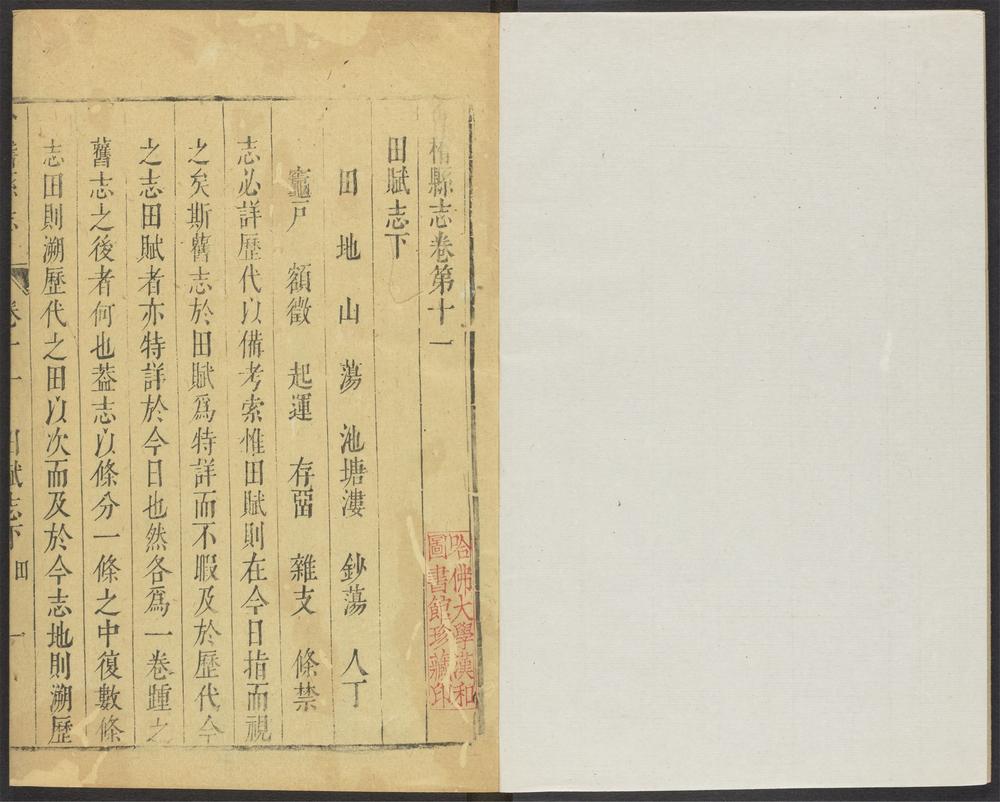 稽縣志卷第十一
田賦志下
田 地 山 蕩 池塘漊 鈔蕩 人丁
竈戸 額徵 起運 存畱 雜支 條禁
志必詳歷代以備考索惟田賦則在今日指而視
之矣斯舊志於田賦爲特詳而不暇及於歷代今
之志田賦者亦特詳於今日也然各爲一卷踵之
舊志之後者何也葢志以條分一條之中復數條
志田則溯歷代之田以次而及於今志地則溯歷
卷十一 田賦志下 田 一
哈佛大學漢和
圖書館珍藏印